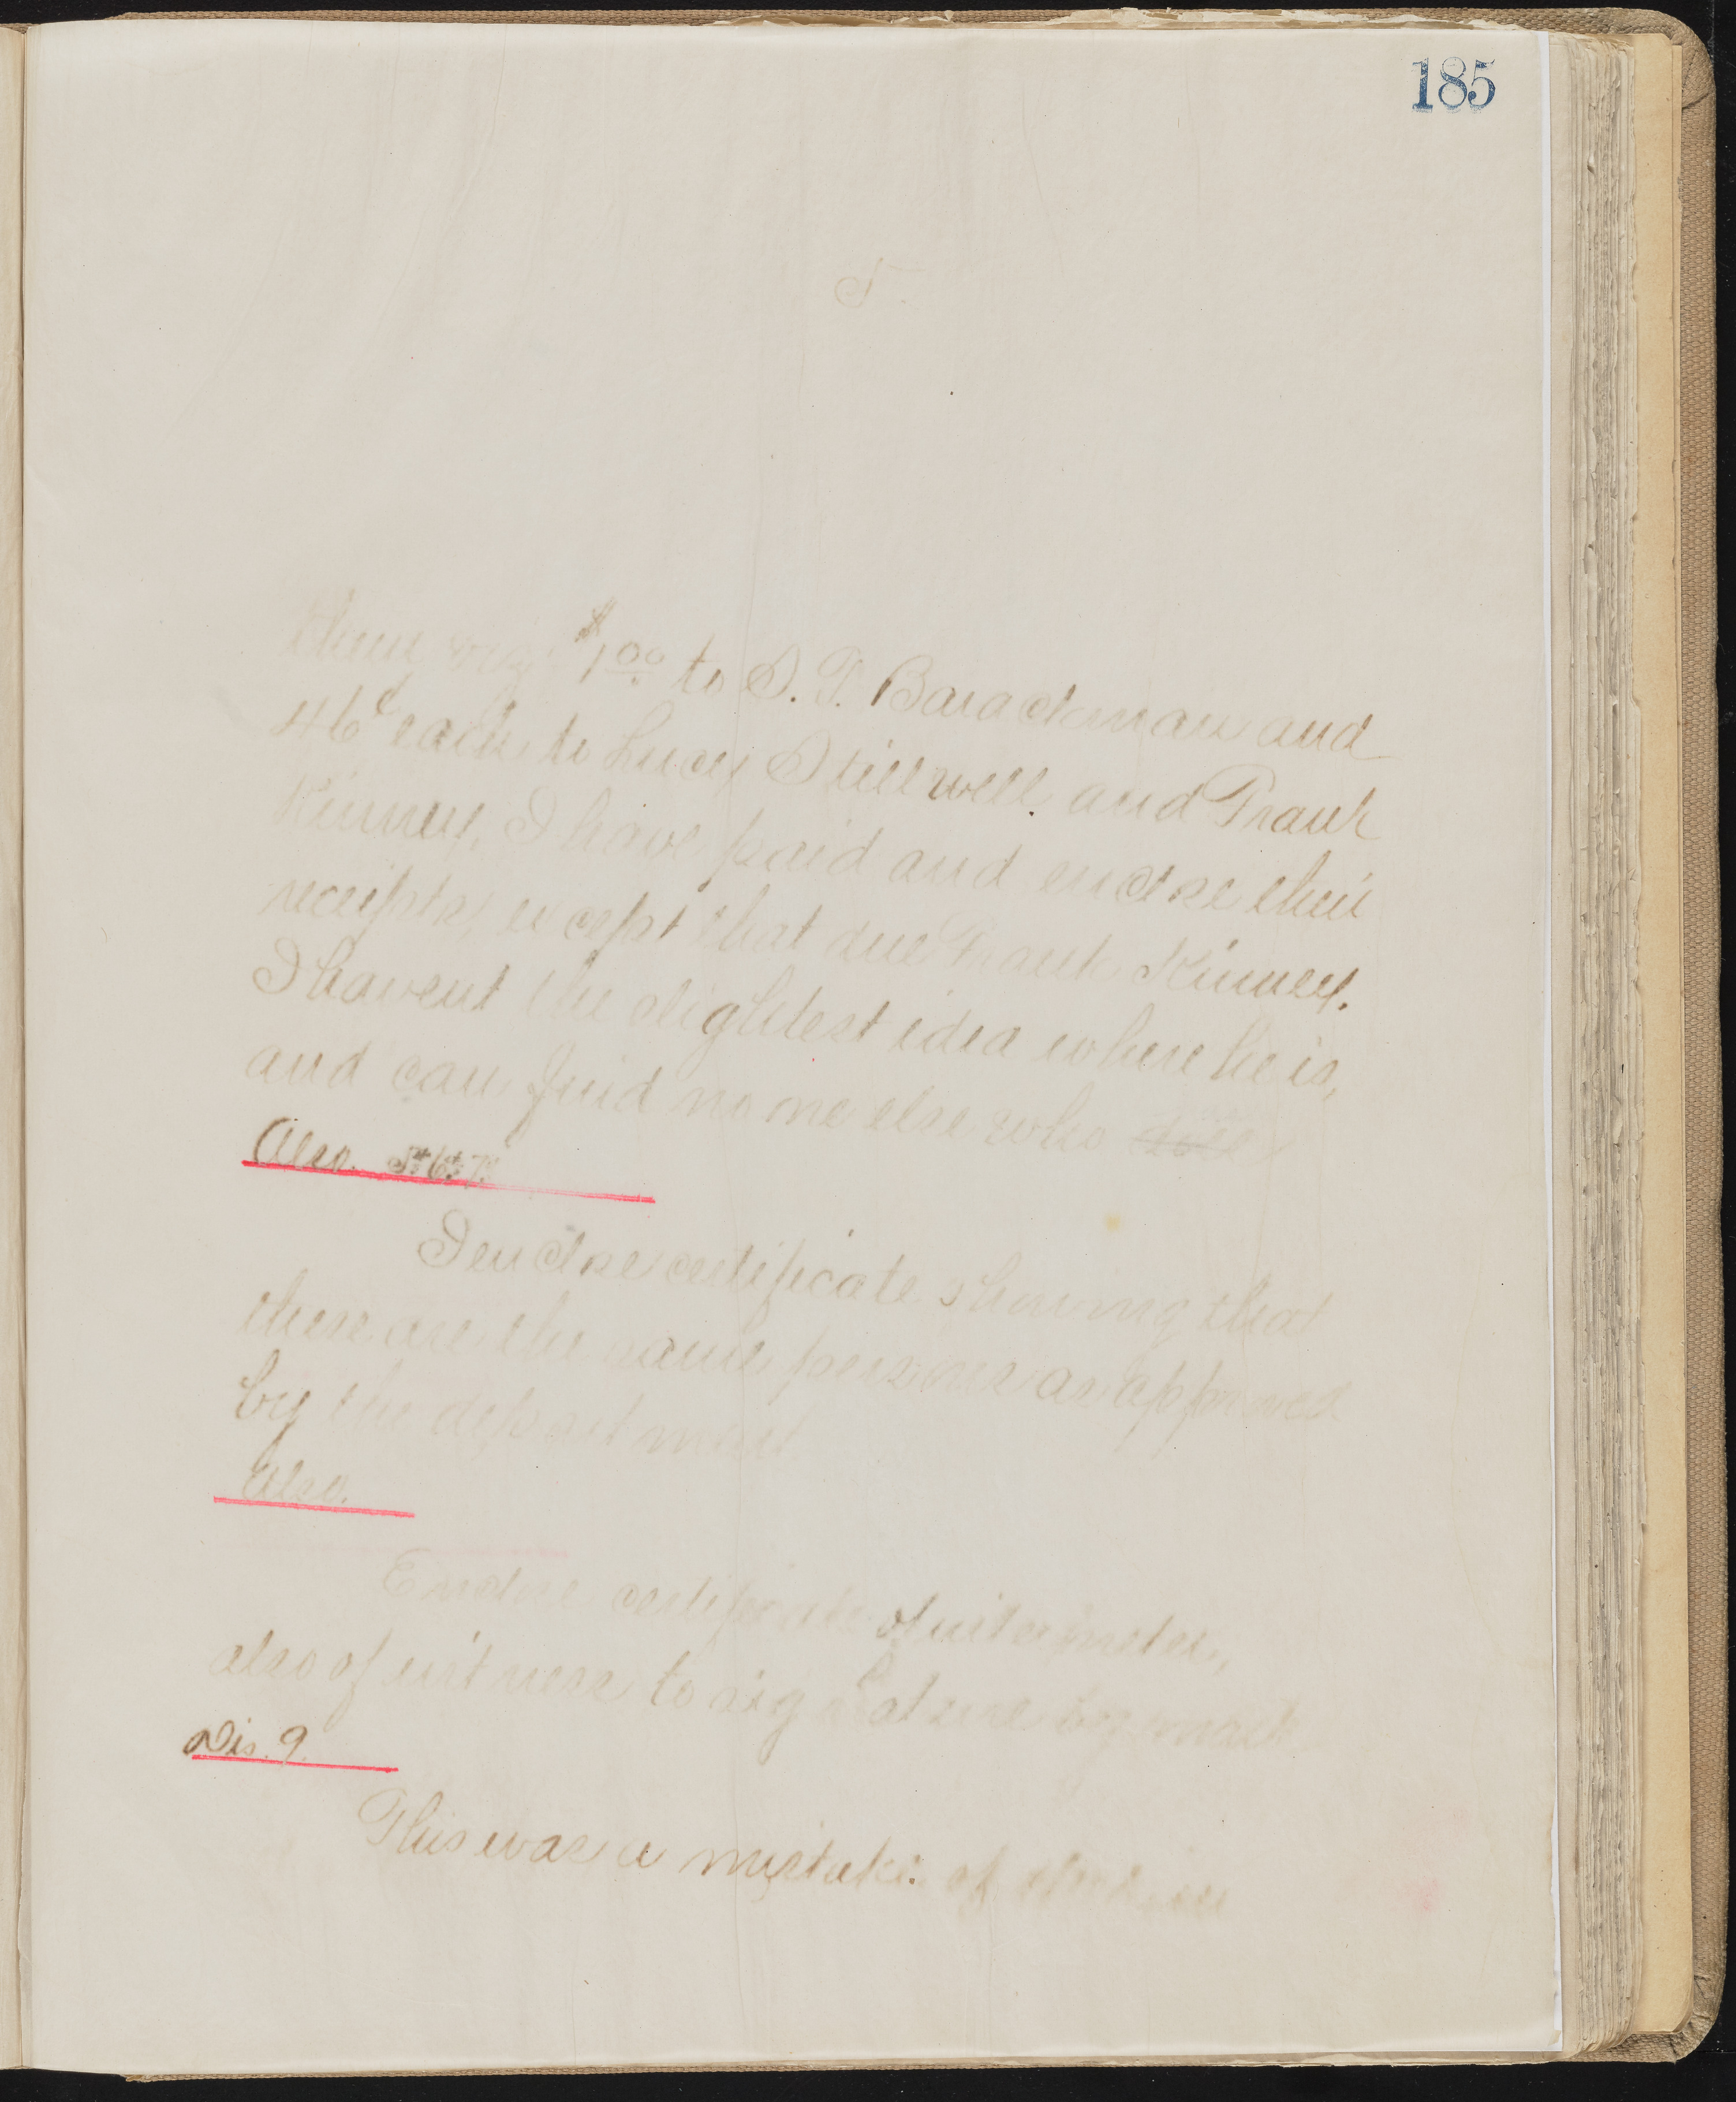 185
5
them, viz: $1.00 to S. T. Barackman and
46¢ each to Lucy Stillwell and Frank
Kinney. I have paid and enclose their
receipts, except that due Frank Kinney.
I havent the slightest idea where he is,
and can find no one else who does
Also. 5th 6th 7th
I enclose certificate showing that
these are the same persons as approved
by the department
Also.
Enclose certificate of interpreter,
also of witness to signature by mark
Dis. 9.
This was a mistake of